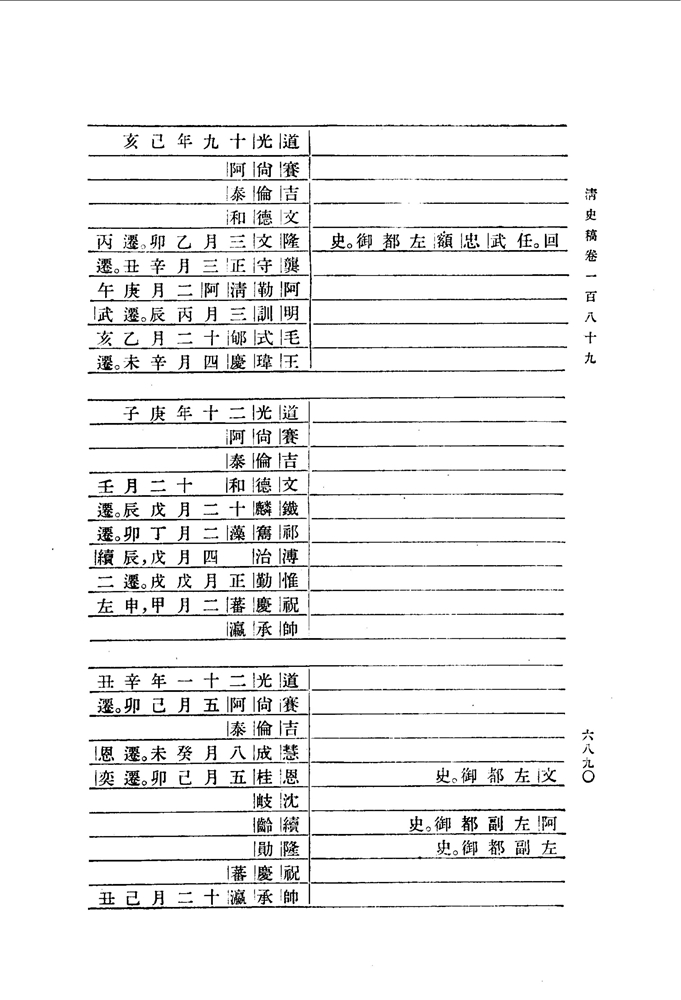 清史稿卷一百八十九
道光十九年己亥
賽尚阿
吉倫泰
文德和
回任。武忠額左都御史。
隆文三月乙卯遷。丙
龔守正三月辛丑遷。
阿勒清阿二月庚午
明訓三月丙辰遷。武
毛式郇十二月乙亥
王瑋慶四月辛未遷。
道光二十年庚子
賽尚阿
吉倫泰
文德和 十二月壬
鐵麟十二月戊辰遷。
祁寯藻二月丁卯遷。
溥治 四月戊辰,續
惟勤正月戊戌遷。二
祝慶蕃二月甲申,左
帥承瀛
道光二十一年辛丑
賽尚阿五月己卯遷。
吉倫泰
慧成八月癸未遷。恩
文左都御史。
恩桂五月己卯遷。奕
沈岐
阿左副都御史。
續齡
左副都御史。
隆勛
祝慶蕃
帥承瀛十二月己丑
六八九〇